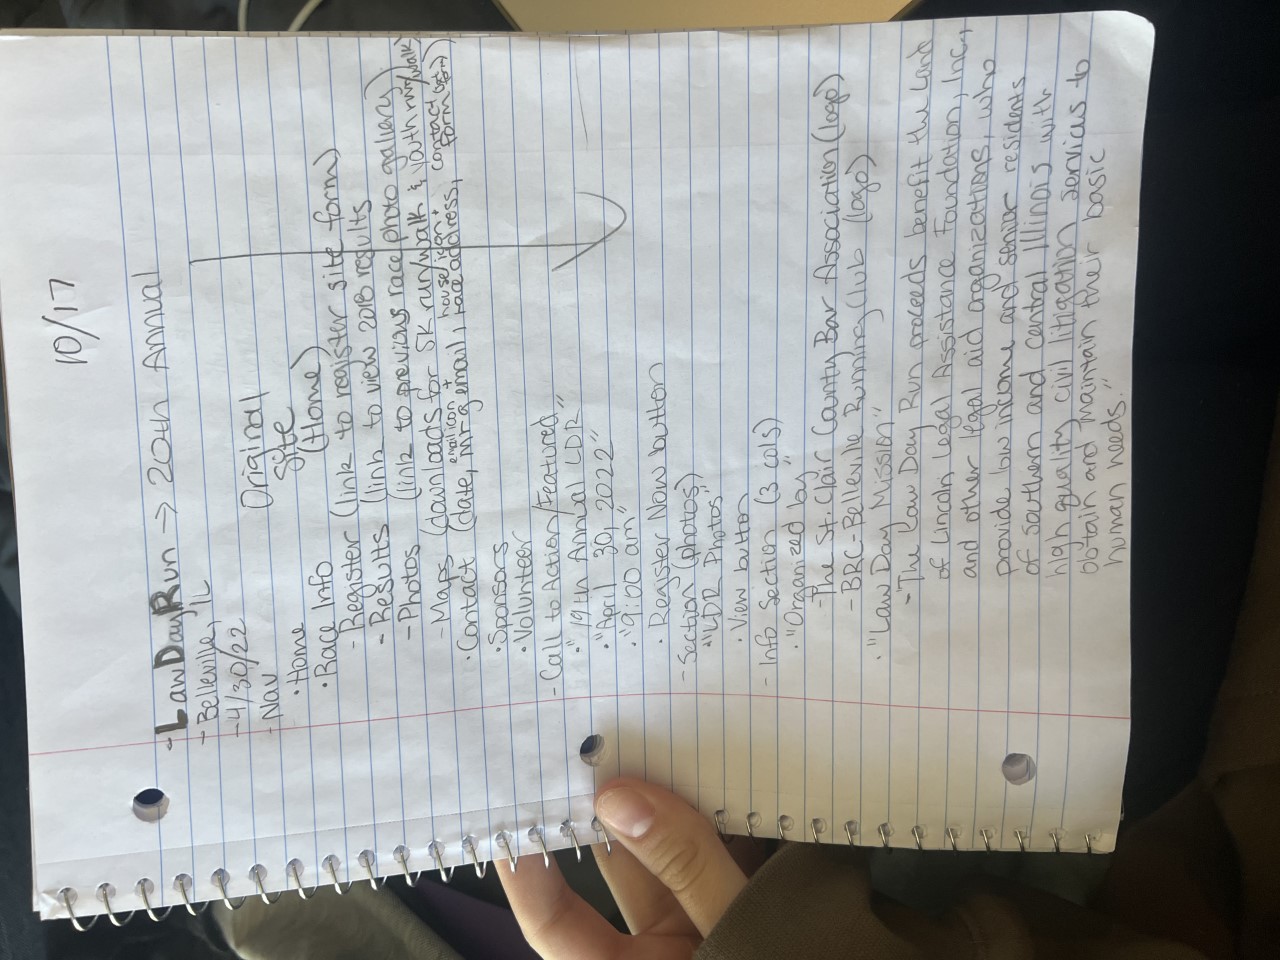 10/17
- LawDayRun → 20th Annual
- Belleville, IL
- 4/30/22
- Nav
Original Site (Home)
• Home
• Race Info
- Register (link to register site form)
- Results (link to view 2018 results
- Photos (link to previous race photo gallery)
- Maps (downloads for 5K run/walk & youth run/walk)
• Contact (date, email icon + email, house icon + race address, contact form
• Sponsors
• Volunteer
- Call to Action/Featured
• "19th Annual LDR"
• "April 30, 2022"
• "9:00 am"
• Register Now button
- Section (photos)
• "LDR Photos"
• View button
- Info Section (3 cols)
• "Organized by"
- The St. Clair County Bar Association (logo)
- BRC-Belleville Running Club (logo)
• "Law Day Mission"
- "The Law Day Run proceeds benefit the Land
of Lincoln Legal Assistance Foundation, Inc.,
and other legal aid organizations, who
provide low income and senior residents
of southern and central Illinois with
high quality civil litigation services to
obtain and maintain their basic
human needs."